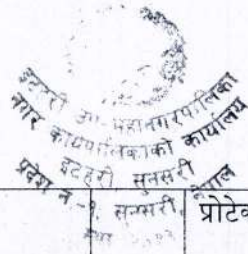 इटहरी उप-महानगरपालिका
नगर कार्यपालिकाको कार्यालय
इटहरी सुनसरी
प्रदेश नं -१, सुनसरी, नेपाल
प्रोटेक